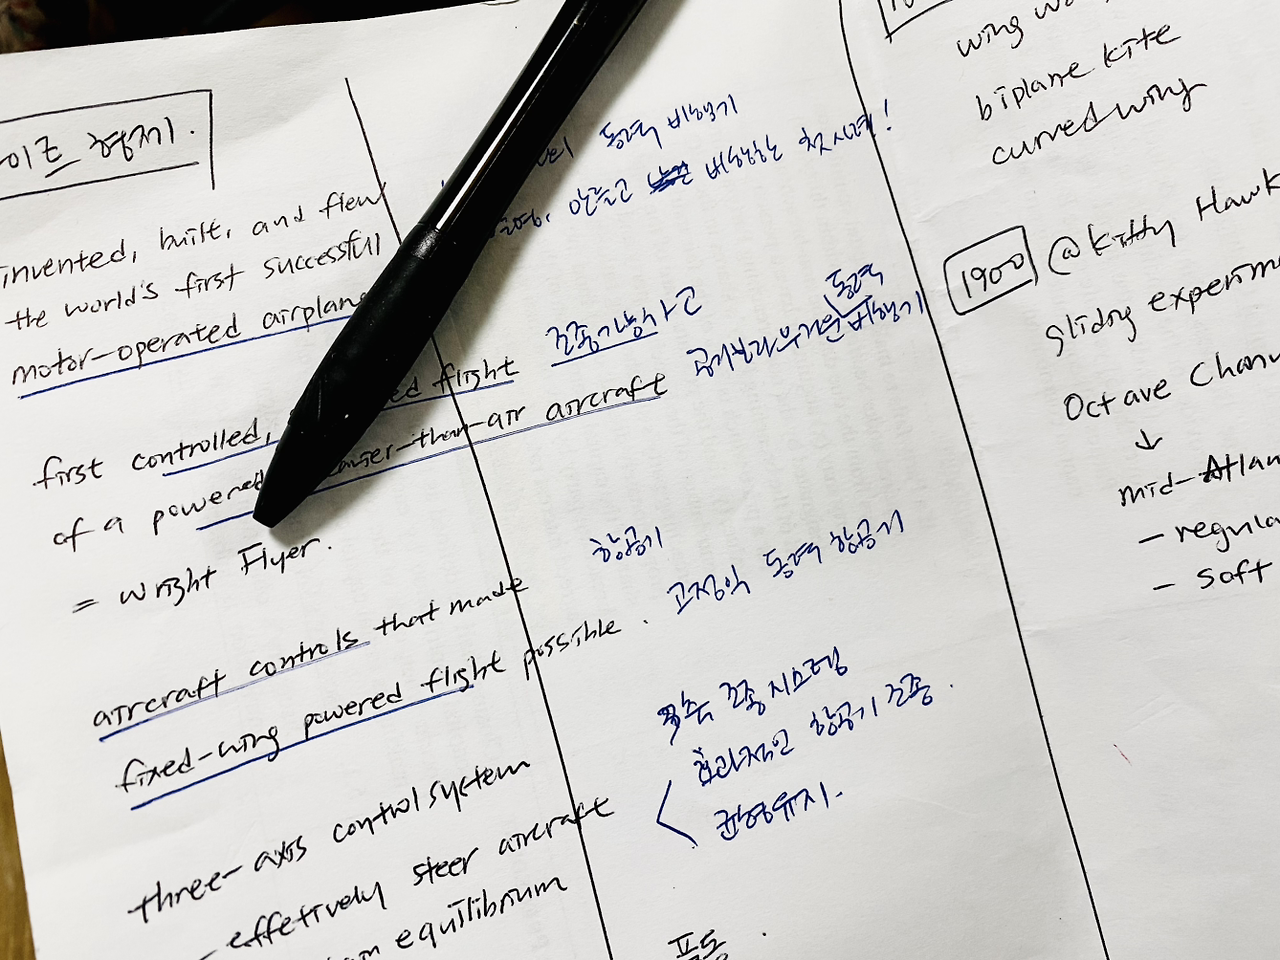 이트 형제.
invented, built, and flew
the world's first successful
motor-operated airplane
first controlled, flight
of a powered heavier-than-air aircraft
= Wright Flyer.
aircraft controls that made
fixed-wing powered flight possible.
three-axis control system
- effetively steer aircraft
equilibrium
동력 비행기
만들고 비행하는 첫 사례!
조종가능하고
공기보다 무거운 비행기
동력
항공기
고정익 동력 항공기
3축 조종 시스템
효과적인 항공기 조종.
균형유지.
wing
biplane kite
curved wing
1900 @Kitty Hawk
gliding experime
Octave Chanu
↓
mid-Atlan
- regula
- soft